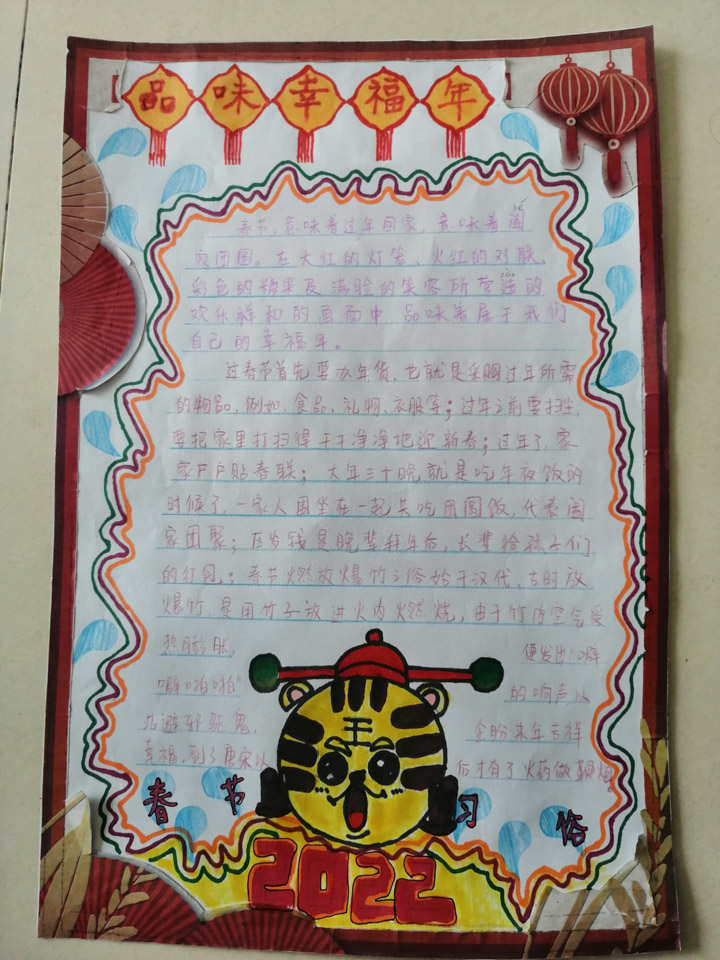 品味幸福年
hé
春节，意味着过年回家，意味着阖
家团圆。在大红的灯笼、火红的对联、
zào
彩色的糖果及满脸的笑容所营造的
欢乐祥和的画面中 品味着属于我们
自己的幸福年。
过春节首先要办年货，也就是采购过年所需
的物品，例如，食品、礼物、衣服等；过年之前要扫尘，
要把家里打扫得干干净净地迎新春；过年了，家
家户户贴春联；大年三十晚就是吃年夜饭的
时候了，一家人围坐在一起共吃团圆饭，代表阖
家团聚；压岁钱是晚辈拜年后，长辈给孩子们
的红包；春节燃放爆竹之俗始于汉代，古时放
爆竹，是用竹子放进火内燃烧，由于竹内空气受
热膨胀， 便发出“噼
噼啪啪” 的响声，以
此避邪驱鬼， 企盼来年吉祥
幸福，到了唐宋以 后才有了火药做鞭炮。
春节习俗
王
2022